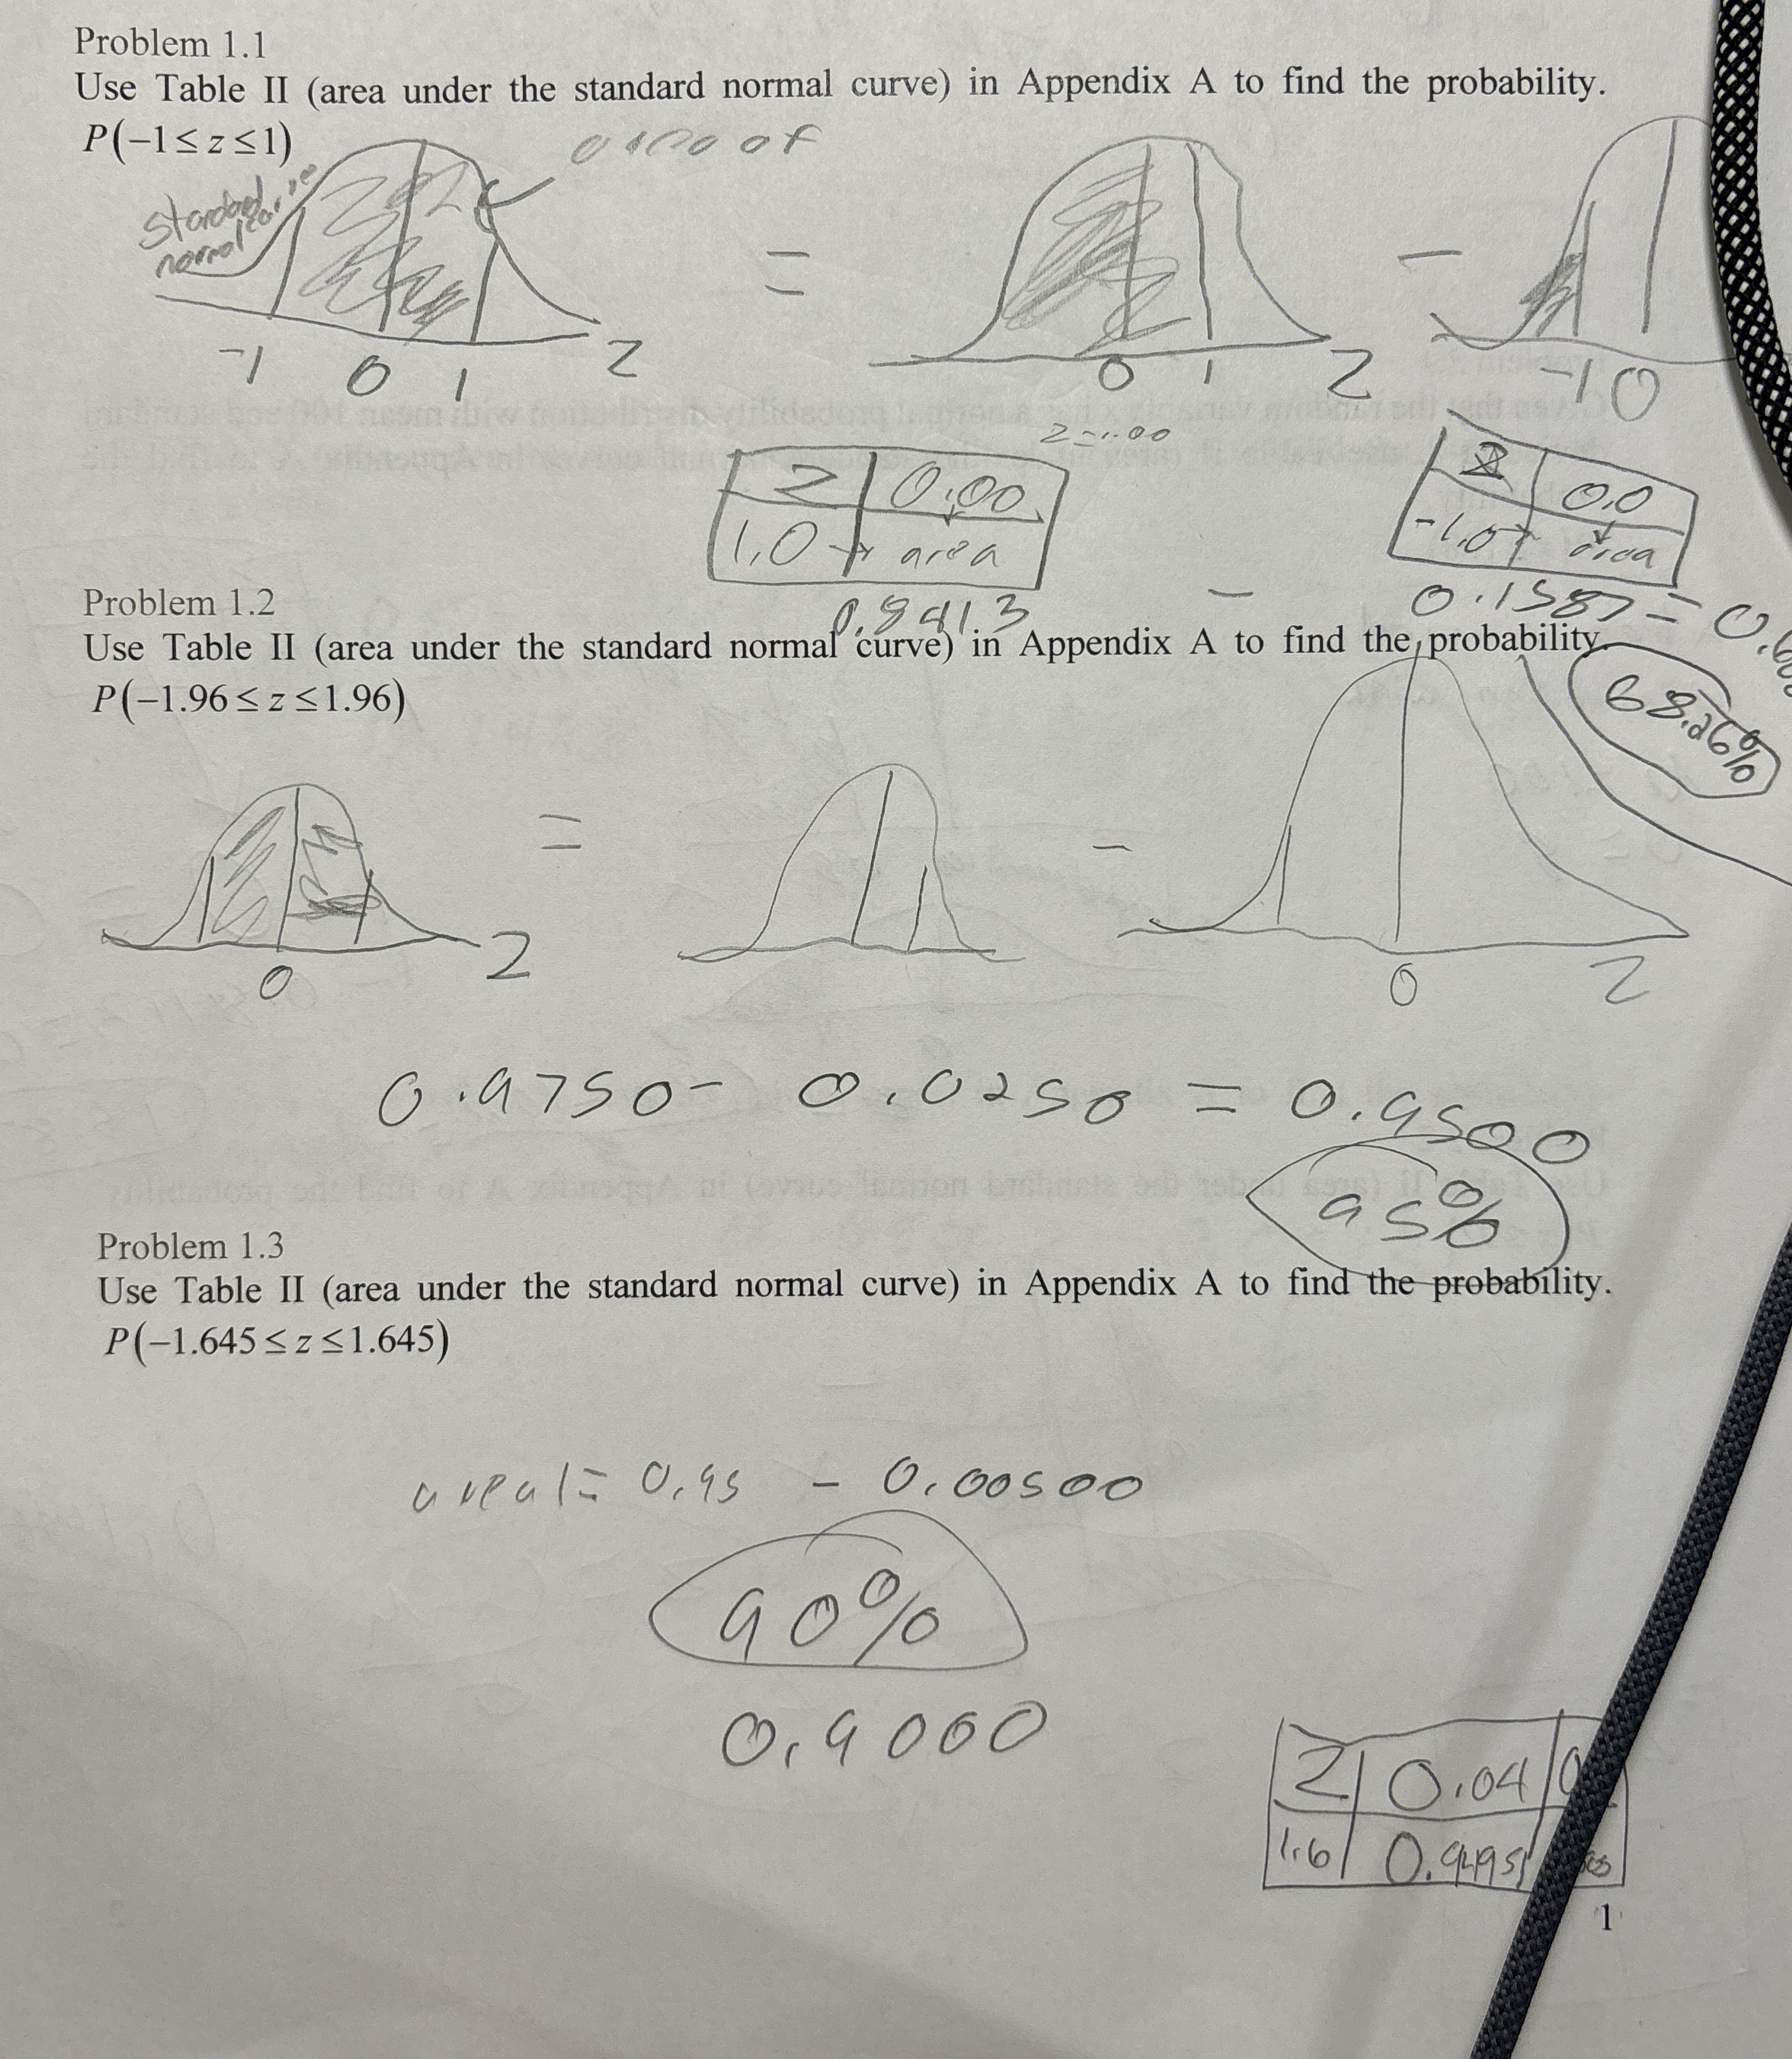 Problem 1.1
Use Table II (area under the standard normal curve) in Appendix A to find the probability.
P(−1 ≤ z ≤ 1)
area of
standard
normal curve
=
−
-1 0 1 Z
0 1 Z
-1 0
Z=1.00
Z 0.00
1.0 → area
Z 0.0
-1.0 → area
0.8413 − 0.1587 = 0.6
68.26%
Problem 1.2
Use Table II (area under the standard normal curve) in Appendix A to find the probability.
P(−1.96 ≤ z ≤ 1.96)
=
−
0 Z
0 Z
0.9750 - 0.0250 = 0.9500
95%
Problem 1.3
Use Table II (area under the standard normal curve) in Appendix A to find the probability.
P(−1.645 ≤ z ≤ 1.645)
area1= 0.95 − 0.00500
90%
0.9000
Z 0.04 0
1.6 0.9495
1